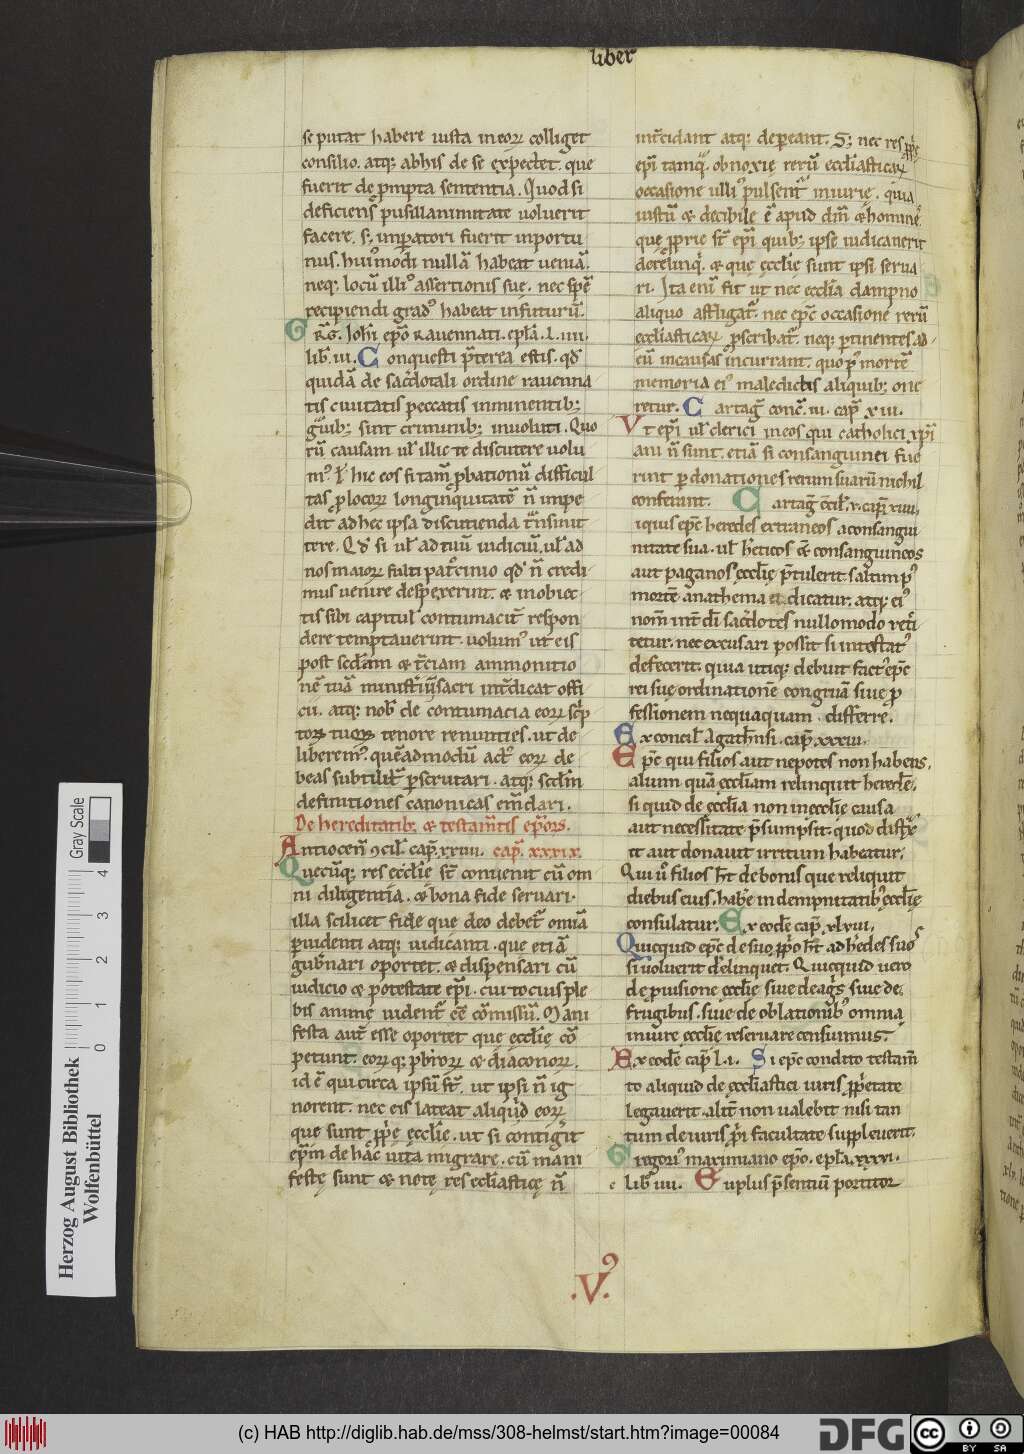 liber
se putat habere iusta in eoꝝ colliget
consilio. atq; ab his de se expectet. que
fuerit de p̄mpta sententia. Quod si
deficiens pusillanimitate uoluerit
facere. s; impatori fuerit inportu
nus. hui᷒modi nullā habeat ueniā.
neq; locū illi᷒ assertionis sue. nec spē
recipiendi grad᷒ habeat in futurū.
GR̄G. Ioh̄i ep̄o Rauennati. epl̄a. l. iiii.
lib̄. iii. Conquesti p̄terea estis. qd̄
quidā de sac̄dotali ordine rauenna
tis ciuitatis peccatis inminentib;
ḡuib; sint criminib; inuoluti. Quo
rū causam ul̄ illic te discutere uolu
m᷒. ł hic eos si tam̄ p̄bationū difficul
tas p̄ locoꝝ longinquitatē n̄ impe
dit ad hec ipsa discutienda t̄nsmit
tere. Qd̄ si ul̄ ad tuū iudiciū. ul̄ ad
nos maioꝝ fulti pat̄cinio qd̄ n̄ credi
mus uenire despexerint. & in obiec
tis sibi capitul̄ contumacit̄ respon
dere temptauerint. uolum᷒ ut eis
post sc̄dam & t̄ciam ammonitio
nē tuā ministīū sacri int̄dicat offi
cii. atq; nob̄ de contumacia eoꝝ sc̄p
toꝝ tuoꝝ tenore renunties. ut de
liberem᷒. quēadmodū act᷒ eoꝝ de
beas subtilit̄ p̄scrutari. atq; sc̄dm
definitiones canonicas em̄dari.
De hereditatib; & testam̄tis ep̄ors.
Antiocen̄ ꝯcil̄. cap̄. xxiiii. cap̄. xxxix.
Quecūq; res eccl̄ie st̄ conuenit cū om
ni diligentia. & bona fide seruari.
illa scilicet fide que deo debet̄ omīa
p̄uidenti atq; iudicanti. que etiā
gub̄nari oportet. & dispensari cū
iudicio & potestate ep̄i. cui tocius ple
bis anime uident̄ eē cōmissū. Mani
festa aut̄ esse oportet que eccl̄ie cō
petunt. eoꝝ q; pb̄roꝝ & diaconoꝝ.
id ē qui circa ipsū st̄. ut ipsi n̄ ig
norent. nec eis lateat aliqd̄ eoꝝ
que sunt p̄p̄e eccl̄ie. ut si contigīt
ep̄m de hac uita migrare. cū mani
feste sunt & note res eccl̄iastice n̄
int̄cidant atq; depereant. S; nec res p̄p̄e
ep̄i tamq̄. obnoxie rerū eccl̄iasticaꝝ
occasione ulli᷒ pulsent̄ iniurie. quia
iustū & decibile ē apud dm̄ & homine
que p̄prie st̄ ep̄i quib; ipse iudicauerit
derelinq̄. & que eccl̄ie sunt ipsi serua
ri. Ita enī fit ut nec eccl̄ia dampno
aliquo affligat̄. nec ep̄c occasione rerū
eccl̄iasticaꝝ p̄scribat̄. neq; p̄tinentes ad
eū in causas incurrant. quo p᷒ mortē
memoria ei᷒ maledictis aliquib; one
retur. Cartag̅ conc̄. iii. cap̄. xiii.
Vt ep̄i ul̄ clerici in eos qui catholici xp̄i
ani n̄ sunt. etiā si consanguinei fue
rint p̄ donationes rerum suarū nichil
conferant. Cartag̅ c̄cil̄. v. cap̄. xiiii.
iquis ep̄c heredes extraneos a consangui
nitate sua. ul̄ h̄eticos & consanguineos
aut paganos eccl̄ie p̄tulerit saltim p᷒
mortē anathema ei dicatur. atq; ei᷒
nom̄ int̄ d̄i sac̄dotes nullo modo reci
tetur. nec excusari possit si intestat᷒
defecerit. quia utiq; debuit fact᷒ ep̄c
rei sue ordinationē congruā sue p̄
fessionem nequaquam differre.
Ex concil̄ Agath̄nsi. cap̄. xxxiii.
Ep̄c qui filios aut nepotes non habens.
alium quā eccl̄iam relinquit herede.
si quid de eccl̄ia non in eccl̄ie causa
aut necessitate p̄sumpsit. quod distᷓx
it aut donauit irritum habeatur.
Qui u᷒ filios h̄t de bonis que reliquit
diebus eius. hab̄e in dempnitatib᷒ eccl̄ie
consulatur. Ex eodē cap̄. xlviii.
Quicquid ep̄c de suo p̄p̄o h̄t ad h̄edes suos
si uoluerit d̄elinquet. Quicquid uero
de p̄uisione eccl̄ie siue de ag̅s siue de
frugibus. siue de oblationib᷒ omnia
in iure eccl̄ie reseruare censuimus.
Ex eodē cap̄ l. i. Si ep̄c condito testam̄
to aliquid de eccl̄iastici iuris p̄p̄etate
legauerit. alit̄ non ualebit nisi tan
tum de iuris p̄i facultate suppleuerit.
Gregori᷒ maximiano ep̄o. epl̄a. xxxvi.
e lib̄ iiii. Euplus p̄sentiū portitor
.V᷒.
Herzog August Bibliothek
Wolfenbüttel
0 1 2 3 4 Gray Scale
(c) HAB http://diglib.hab.de/mss/308-helmst/start.htm?image=00084
DFG
cc
BY SA